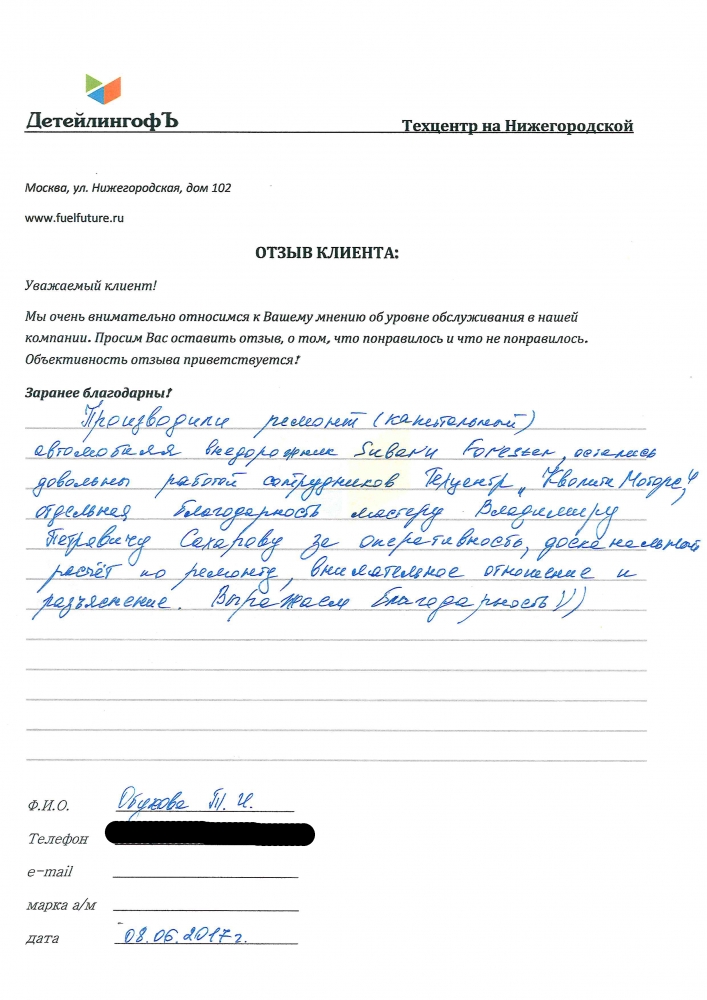 ДетейлингофЪ Техцентр на Нижегородской
Москва, ул. Нижегородская, дом 102
www.fuelfuture.ru
ОТЗЫВ КЛИЕНТА:
Уважаемый клиент!
Мы очень внимательно относимся к Вашему мнению об уровне обслуживания в нашей
компании. Просим Вас оставить отзыв, о том, что понравилось и что не понравилось.
Объективность отзыва приветствуется!
Заранее благодарны!
Производили ремонт (капитальный)
автомобиля внедорожник Subaru Forester, остались
довольны работой сотрудников Техцентр „Кволити Моторс“,
отдельная благодарность мастеру Владимиру
Петровичу Сахарову за оперативность, доскональный
расчёт по ремонту, внимательное отношение и
разъяснение. Выражаем благодарность!))
Ф.И.О. Обухова Т. И.
Телефон
e-mail
марка а/м
дата 08.06.2017 г.